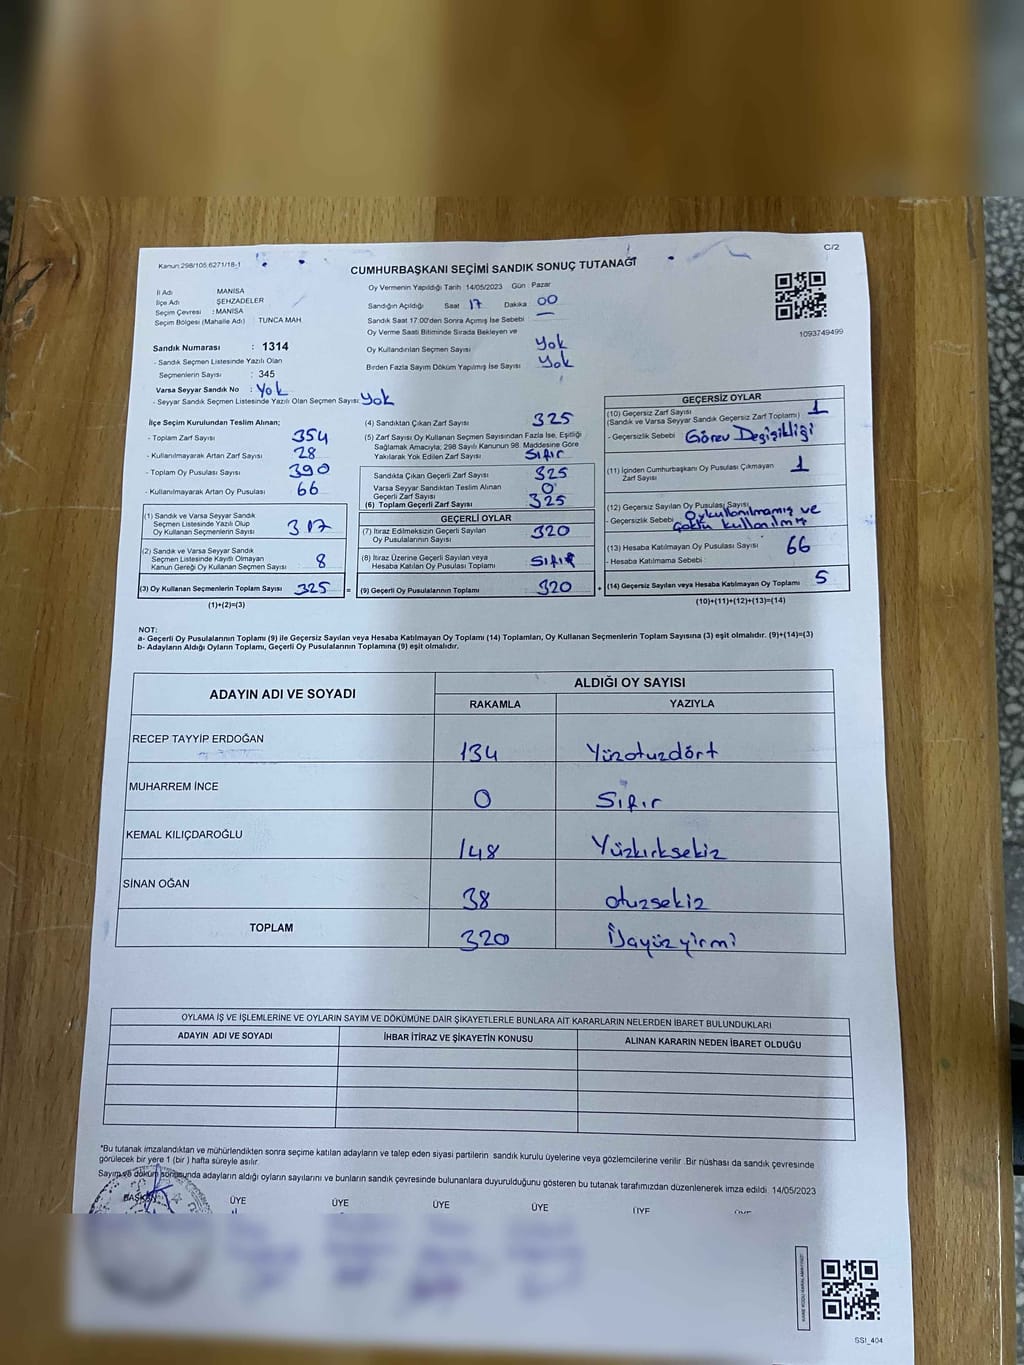 C/2
Kanun:298/105.6271/18-1
CUMHURBAŞKANI SEÇİMİ SANDIK SONUÇ TUTANAĞI
İl Adı : MANİSA
İlçe Adı : ŞEHZADELER
Seçim Çevresi : MANİSA
Seçim Bölgesi (Mahalle Adı) : TUNCA MAH.
Sandık Numarası : 1314
- Sandık Seçmen Listesinde Yazılı Olan
Seçmenlerin Sayısı : 345
Varsa Seyyar Sandık No : Yok
- Seyyar Sandık Seçmen Listesinde Yazılı Olan Seçmen Sayısı: Yok
Oy Vermenin Yapıldığı Tarih 14/05/2023 Gün Pazar
Sandığın Açıldığı Saat 17 Dakika 00
Sandık Saat 17:00'den Sonra Açımış İse Sebebi —
Oy Verme Saati Bitiminde Sırada Bekleyen ve
Oy Kullandırılan Seçmen Sayısı Yok
Birden Fazla Sayım Döküm Yapılmış İse Sayısı Yok
1093749499
İlçe Seçim Kurulundan Teslim Alınan;
- Toplam Zarf Sayısı 354
- Kullanılmayarak Artan Zarf Sayısı 28
- Toplam Oy Pusulası Sayısı 390
- Kullanılmayarak Artan Oy Pusulası 66
(1) Sandık ve Varsa Seyyar Sandık
Seçmen Listesinde Yazılı Olup
Oy Kullanan Seçmenlerin Sayısı 317
(2) Sandık ve Varsa Seyyar Sandık
Seçmen Listesinde Kayıtlı Olmayan
Kanun Gereği Oy Kullanan Seçmen Sayısı 8
(3) Oy Kullanan Seçmenlerin Toplam Sayısı 325 =
(1)+(2)=(3)
(4) Sandıktan Çıkan Zarf Sayısı 325
(5) Zarf Sayısı Oy Kullanan Seçmen Sayısından Fazla İse, Eşitliği
Sağlamak Amacıyla; 298 Sayılı Kanunun 98. Maddesine Göre
Yakılarak Yok Edilen Zarf Sayısı Sıfır
Sandıkta Çıkan Geçerli Zarf Sayısı 325
Varsa Seyyar Sandıktan Teslim Alınan
Geçerli Zarf Sayısı 0
(6) Toplam Geçerli Zarf Sayısı 325
GEÇERLİ OYLAR
(7) İtiraz Edilmeksizin Geçerli Sayılan
Oy Pusulasının Sayısı 320
(8) İtiraz Üzerine Geçerli Sayılan veya
Hesaba Katılan Oy Pusulası Toplamı Sıfır
(9) Geçerli Oy Pusulalarının Toplamı 320 +
GEÇERSİZ OYLAR
(10) Geçersiz Zarf Sayısı
(Sandık ve Varsa Seyyar Sandık Geçersiz Zarf Toplamı) 1
- Geçersizlik Sebebi Görev Değişikliği
(11) İçinden Cumhurbaşkanı Oy Pusulası Çıkmayan
Zarf Sayısı 1
(12) Geçersiz Sayılan Oy Pusulası Sayısı
- Geçersizlik Sebebi Oy kullanılmamış ve
çoklu kullanılmış
(13) Hesaba Katılmayan Oy Pusulası Sayısı 66
- Hesaba Katılmama Sebebi :
(14) Geçersiz Sayılan veya Hesaba Katılmayan Oy Toplamı 5
(10)+(11)+(12)+(13)=(14)
NOT:
a- Geçerli Oy Pusulalarının Toplamı (9) ile Geçersiz Sayılan veya Hesaba Katılmayan Oy Toplamı (14) Toplamları, Oy Kullanan Seçmenlerin Toplam Sayısına (3) eşit olmalıdır. (9)+(14)=(3)
b- Adayların Aldığı Oyların Toplamı, Geçerli Oy Pusulalarının Toplamına (9) eşit olmalıdır.
ADAYIN ADI VE SOYADI
ALDIĞI OY SAYISI
RAKAMLA YAZIYLA
RECEP TAYYİP ERDOĞAN 134 Yüzotuzdört
MUHARREM İNCE 0 Sıfır
KEMAL KILIÇDAROĞLU 148 Yüzkırksekiz
SİNAN OĞAN 38 otuzsekiz
TOPLAM 320 Üçyüzyirmi
OYLAMA İŞ VE İŞLEMLERİNE VE OYLARIN SAYIM VE DÖKÜMÜNE DAİR ŞİKAYETLERLE BUNLARA AİT KARARLARIN NELERDEN İBARET BULUNDUKLARI
ADAYIN ADI VE SOYADI İHBAR İTİRAZ VE ŞİKAYETİN KONUSU ALINAN KARARIN NEDEN İBARET OLDUĞU
*Bu tutanak imzalandıktan ve mühürlendikten sonra seçime katılan adayların ve talep eden siyasi partilerin sandık kurulu üyelerine veya gözlemcilerine verilir. Bir nüshası da sandık çevresinde
görülecek bir yere 1 (bir ) hafta süreyle asılır.
Sayım ve döküm sonusunda adayların aldığı oyların sayılarını ve bunların sandık çevresinde bulunanlara duyurulduğunu gösteren bu tutanak tarafımızdan düzenlenerek imza edildi. 14/05/2023
BAŞKAN ÜYE ÜYE ÜYE ÜYE ÜYE ÜYE
SSI_404